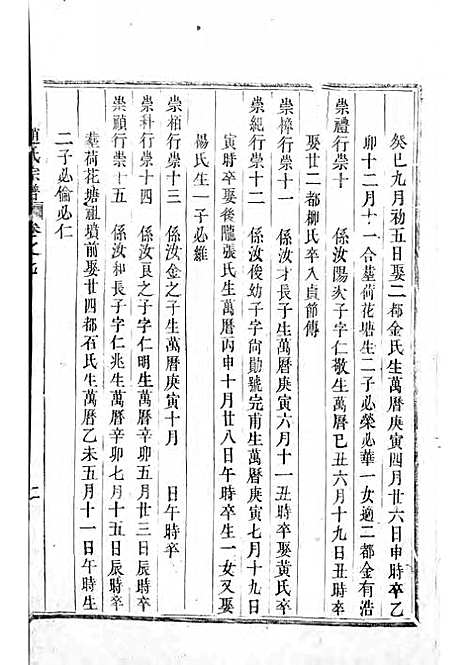 癸巳九月初五日娶二都金氏生萬曆庚寅四月廿六日申時卒乙
卯十二月十一合墓荷花塘生二子必榮必華一女適二都金有浩
崇禮行崇十 係汝陽次子字仁敬生萬曆己丑六月十九日丑時卒
娶廿二都柳氏卒入貞節傳
崇樟行崇十一 係汝才長子生萬曆庚寅六月十一丑時卒娶黃氏卒
崇紀行崇十二 係汝俊幼子字尚勛號完甫生萬曆庚寅七月十九日
寅時卒娶後隴張氏生萬曆丙申十月廿八日午時卒生一女又娶
楊氏生一子必維
崇栢行崇十三 係汝金之子生萬曆庚寅十月 日午時卒
崇科行崇十四 係汝良之子字仁明生萬曆辛卯五月廿三日辰時卒
崇顧行崇十五 係汝和長子字仁兆生萬曆辛卯七月十五日辰時卒
墓荷花塘祖墳前娶廿四都石氏生萬曆乙未五月十一日午時生
二子必倫必仁
氏宗譜 卷之九 二